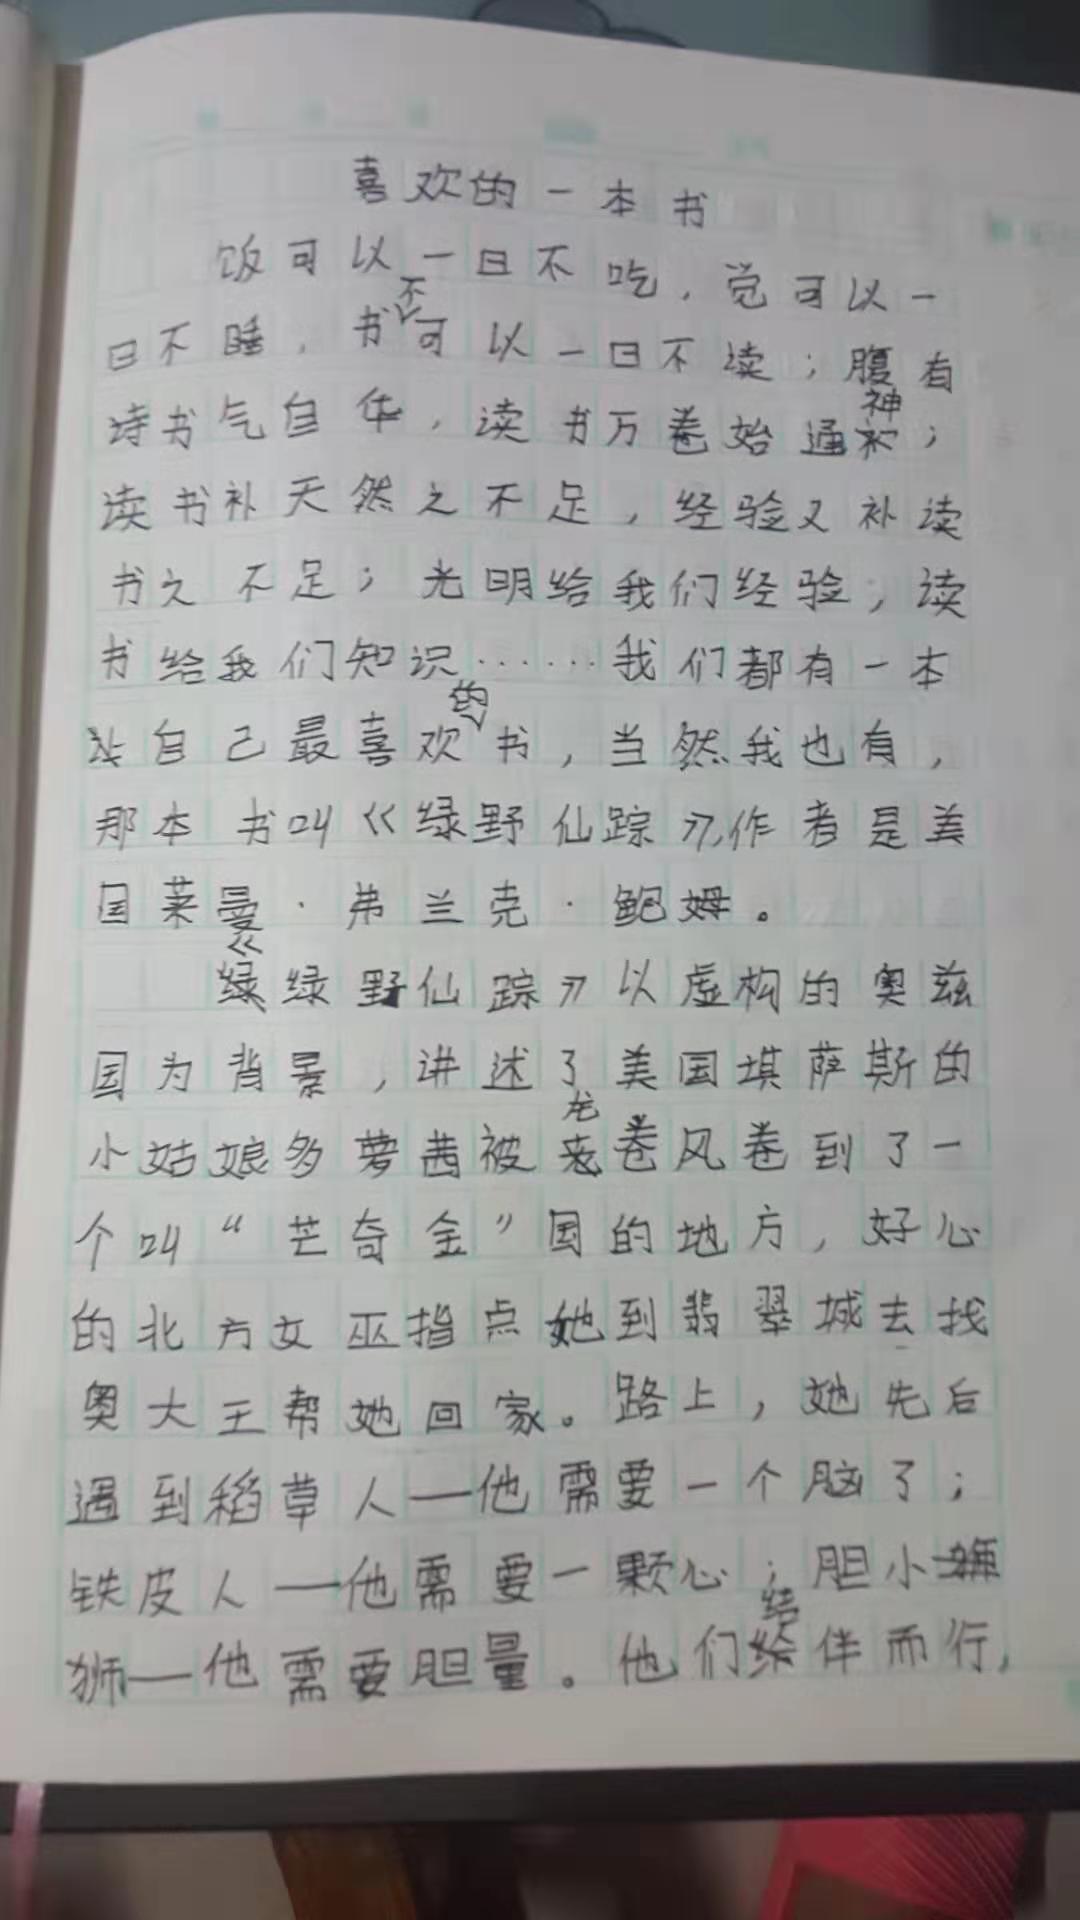 喜欢的一本书
饭可以一日不吃，觉可以一
日不睡，书不可以一日不读；腹有
诗书气自华，读书万卷始通神；
读书补天然之不足，经验又补读
书之不足；光明给我们经验；读
书给我们知识……我们都有一本
自己最喜欢的书，当然我也有，
那本书叫《绿野仙踪》，作者是美
国莱曼·弗兰克·鲍姆。
《绿野仙踪》以虚构的奥兹
国为背景，讲述了美国堪萨斯的
小姑娘多萝茜被龙卷风卷到了一
个叫“芒奇金”国的地方，好心
的北方女巫指点她到翡翠城去找
奥大王帮她回家。路上，她先后
遇到稻草人——他需要一个脑了；
铁皮人——他需要一颗心；胆小
狮——他需要胆量。他们结伴而行，